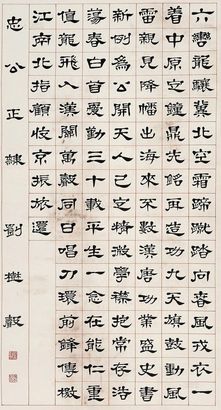 六轡龍驤冀北空蹴踏向春風戎衣一
着中原定鐘鼎先銘再造功九天旗鼓動風
雷親見降幡出海來不數漢唐業盛史書
新例為公開天人之精微學襟抱常存浩
蕩春白首憂勤三十載平生一念在能仁重
值龍飛入漢關萬同日唱刀環前鋒傳檄
江南北指顧收京振旅還
忠公正隸 劉